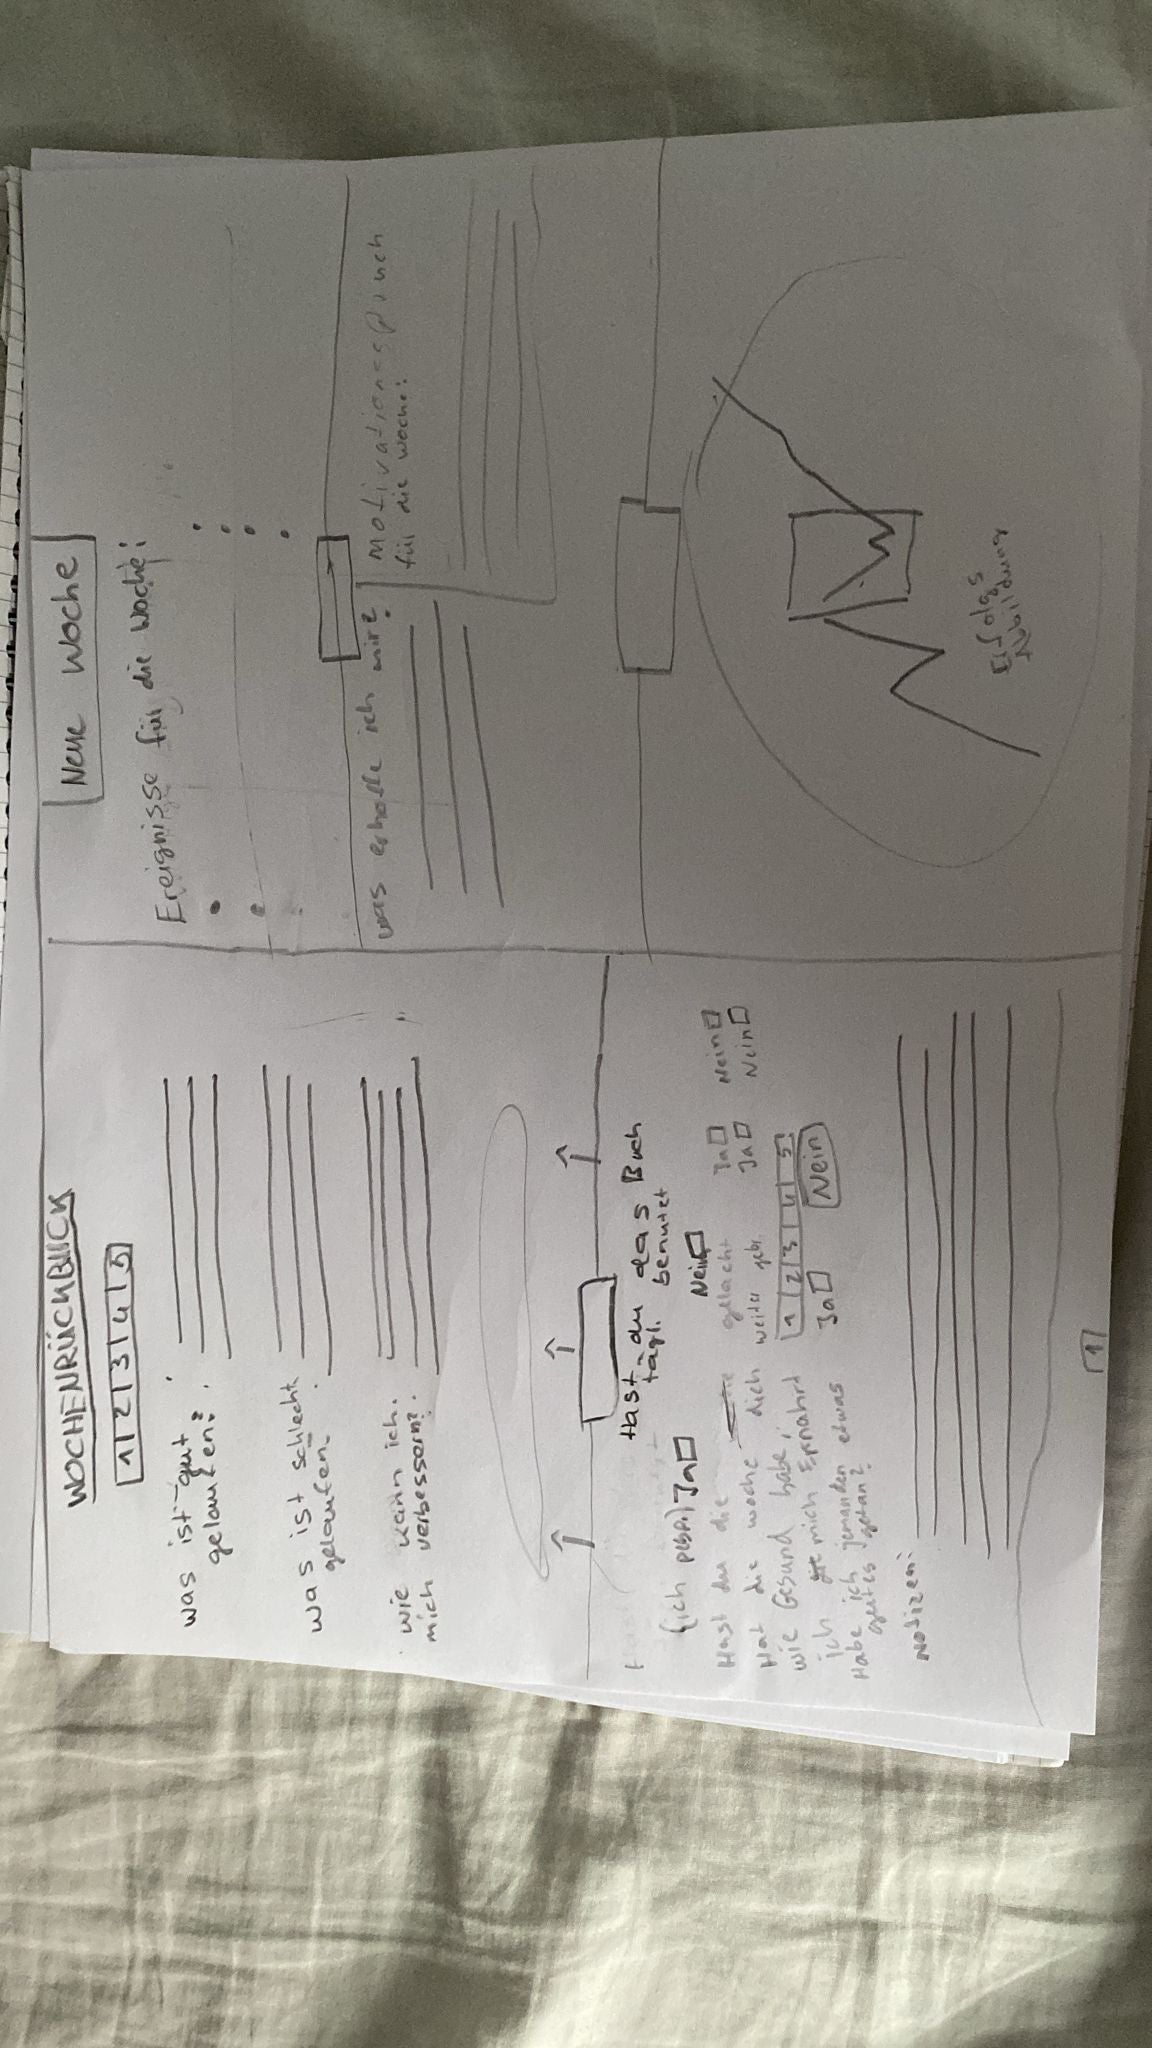 WOCHENRÜCKBLICK
1 2 3 4 5
was ist gut
gelaufen?
was ist schlecht
gelaufen?
wie kann ich
mich verbessern?
Hast du das Buch
tägl. benutzt
Ja Nein
Hast du die woche gelacht Ja Nein
Hat die woche dich weiter gebr. Ja Nein
wie Gesund habe 1 2 3 4 5
ich mich Ernährt
Habe ich jemanden etwas Ja Nein
gutes getan?
Notizen:
1
Neue woche
Ereignisse für die woche:
was erhoffe ich mir?
Motivationsspruch
für die woche:
Erfolgs
Abbildung